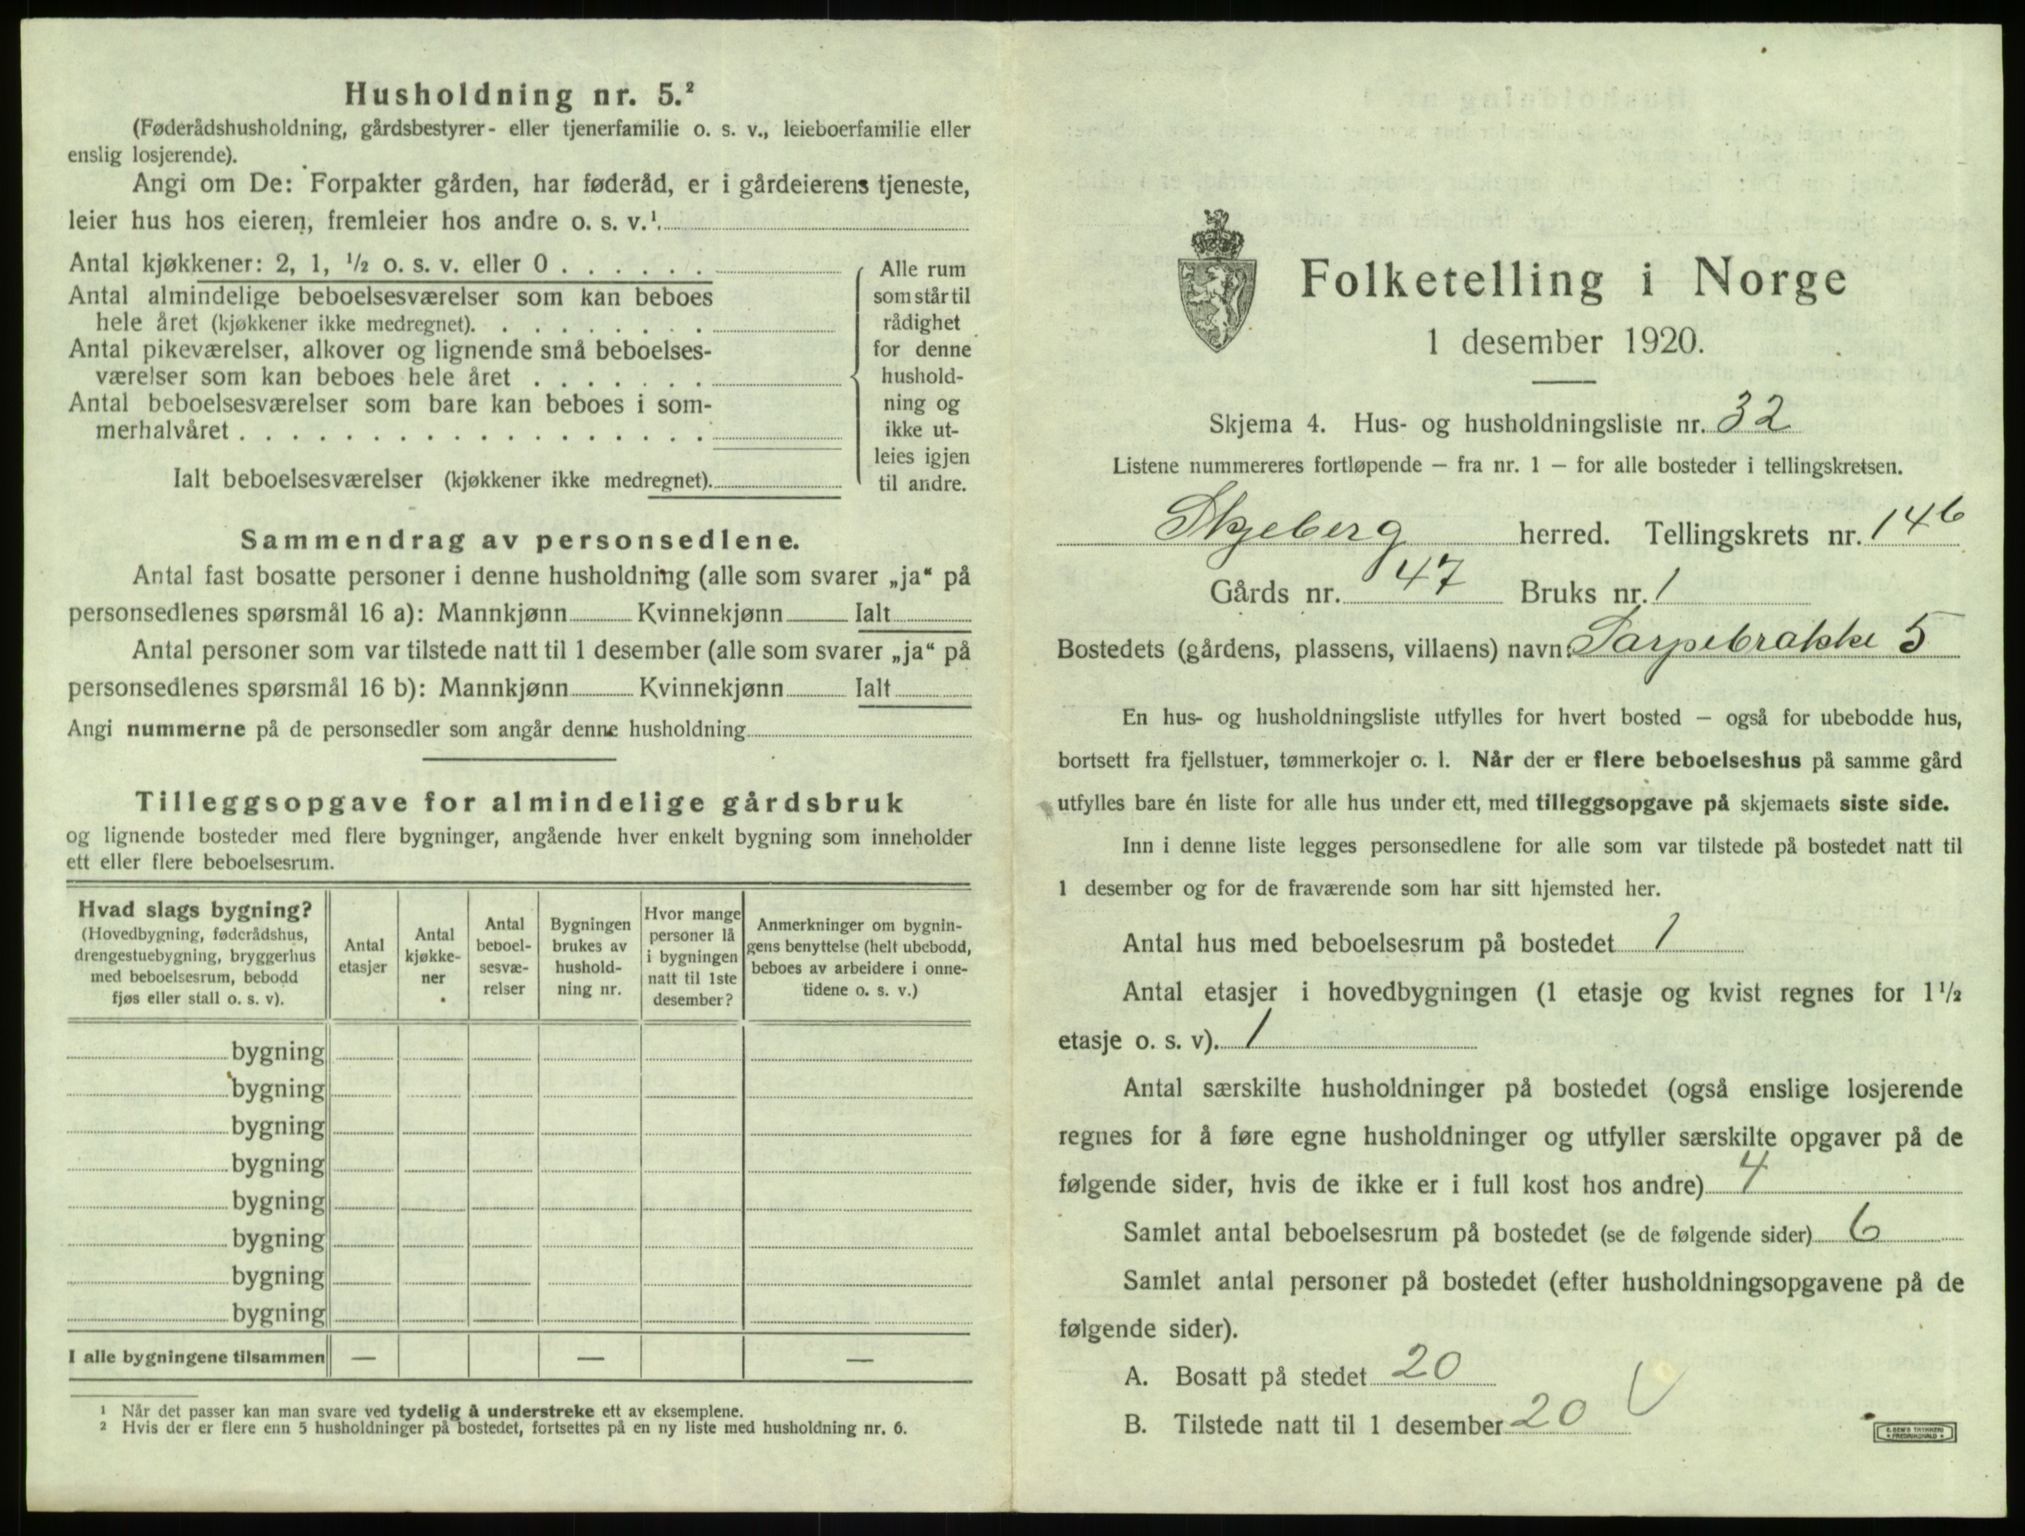 Husholdning nr. 5.²
(Føderådshusholdning, gårdsbestyrer- eller tjenerfamilie o. s. v., leieboerfamilie eller
enslig losjerende).
Angi om De: Forpakter gården, har føderåd, er i gårdeierens tjeneste,
leier hus hos eieren, fremleier hos andre o. s. v.¹
Antal kjøkkener: 2, 1, ½ o. s. v. eller 0
Antal almindelige beboelsesværelser som kan beboes
hele året (kjøkkener ikke medregnet).
Antal pikeværelser, alkover og lignende små beboelses-
værelser som kan beboes hele året
Antal beboelsesværelser som bare kan beboes i som-
merhalvåret
Ialt beboelsesværelser (kjøkkener ikke medregnet).
Alle rum
som står til
rådighet
for denne
hushold-
ning og
ikke ut-
leies igjen
til andre.
Sammendrag av personsedlene.
Antal fast bosatte personer i denne husholdning (alle som svarer „ja“ på
personsedlenes spørsmål 16 a): Mannkjønn Kvinnekjønn Ialt
Antal personer som var tilstede natt til 1 desember (alle som svarer „ja“ på
personsedlenes spørsmål 16 b): Mannkjønn Kvinnekjønn Ialt
Angi nummerne på de personsedler som angår denne husholdning
Tilleggsopgave for almindelige gårdsbruk
og lignende bosteder med flere bygninger, angående hver enkelt bygning som inneholder
ett eller flere beboelsesrum.
Hvad slags bygning?
(Hovedbygning, føderådshus,
drengestuebygning, bryggerhus
med beboelsesrum, bebodd
fjøs eller stall o. s. v).
Antal
etasjer
Antal
kjøkke-
ner
Antal
beboel-
sesvæ-
relser
Bygningen
brukes av
hushold-
ning nr.
Hvor mange
personer lå
i bygningen
natt til 1ste
desember?
Anmerkninger om bygnin-
gens benyttelse (helt ubebodd,
beboes av arbeidere i onne-
tidene o. s. v.)
bygning
bygning
bygning
bygning
bygning
bygning
bygning
bygning
I alle bygningene tilsammen — — —
¹ Når det passer kan man svare ved tydelig å understreke ett av eksemplene.
² Hvis der er flere enn 5 husholdninger på bostedet, fortsettes på en ny liste med husholdning nr. 6.
Folketelling i Norge
1 desember 1920.
Skjema 4. Hus- og husholdningsliste nr. 32
Listene nummereres fortløpende – fra nr. 1 – for alle bosteder i tellingskretsen.
Skjeberg herred. Tellingskrets nr. 14 b
Gårds nr. 47 Bruks nr. 1
Bostedets (gårdens, plassens, villaens) navn: Sarpebrakke 5
En hus- og husholdningsliste utfylles for hvert bosted – også for ubebodde hus,
bortsett fra fjellstuer, tømmerkojer o. l. Når der er flere beboelseshus på samme gård
utfylles bare én liste for alle hus under ett, med tilleggsopgave på skjemaets siste side.
Inn i denne liste legges personsedlene for alle som var tilstede på bostedet natt til
1 desember og for de fraværende som har sitt hjemsted her.
Antal hus med beboelsesrum på bostedet 1
Antal etasjer i hovedbygningen (1 etasje og kvist regnes for 1½
etasje o. s. v). 1
Antal særskilte husholdninger på bostedet (også enslige losjerende
regnes for å føre egne husholdninger og utfyller særskilte opgaver på de
følgende sider, hvis de ikke er i full kost hos andre) 4
Samlet antal beboelsesrum på bostedet (se de følgende sider) 6
Samlet antal personer på bostedet (efter husholdningsopgavene på de
følgende sider).
A. Bosatt på stedet 20
B. Tilstede natt til 1 desember 20